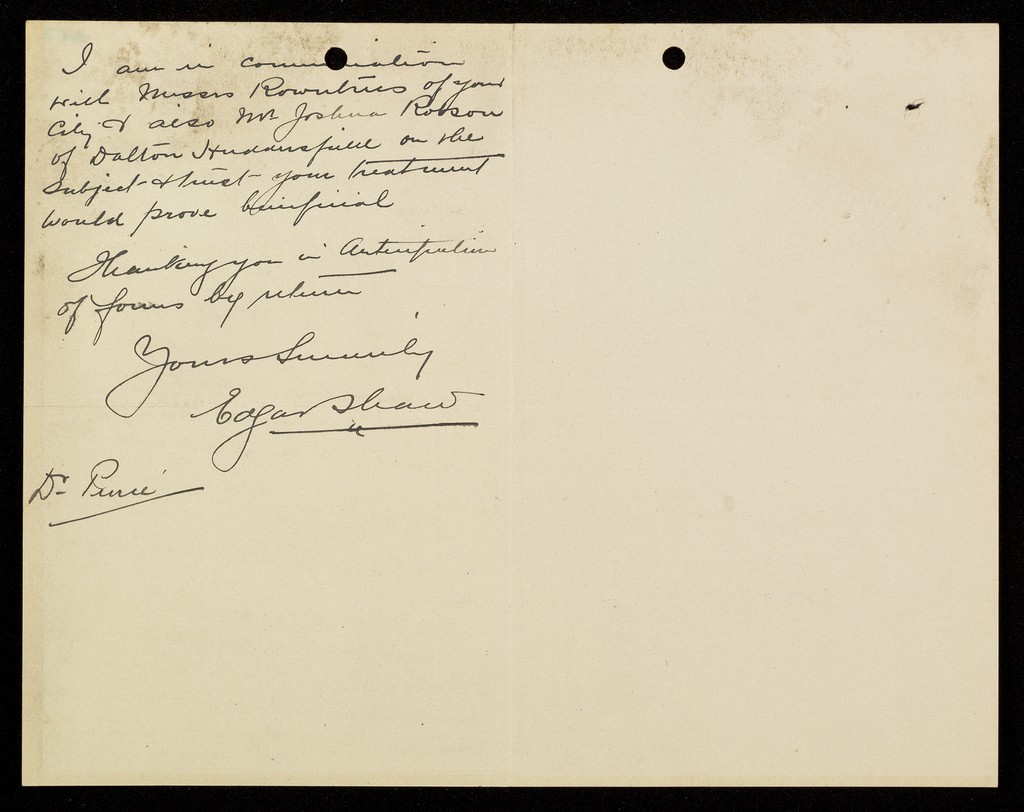 I am in communication
with Messrs Rowntrees of your
City & also Mr Joshua Robson
of Dalton Huddersfield on the
Subject & trust your treatment
would prove beneficial
Thanking you in Anticipation
of forms by return
Yours Sincerely
Edgar Shaw
Dr